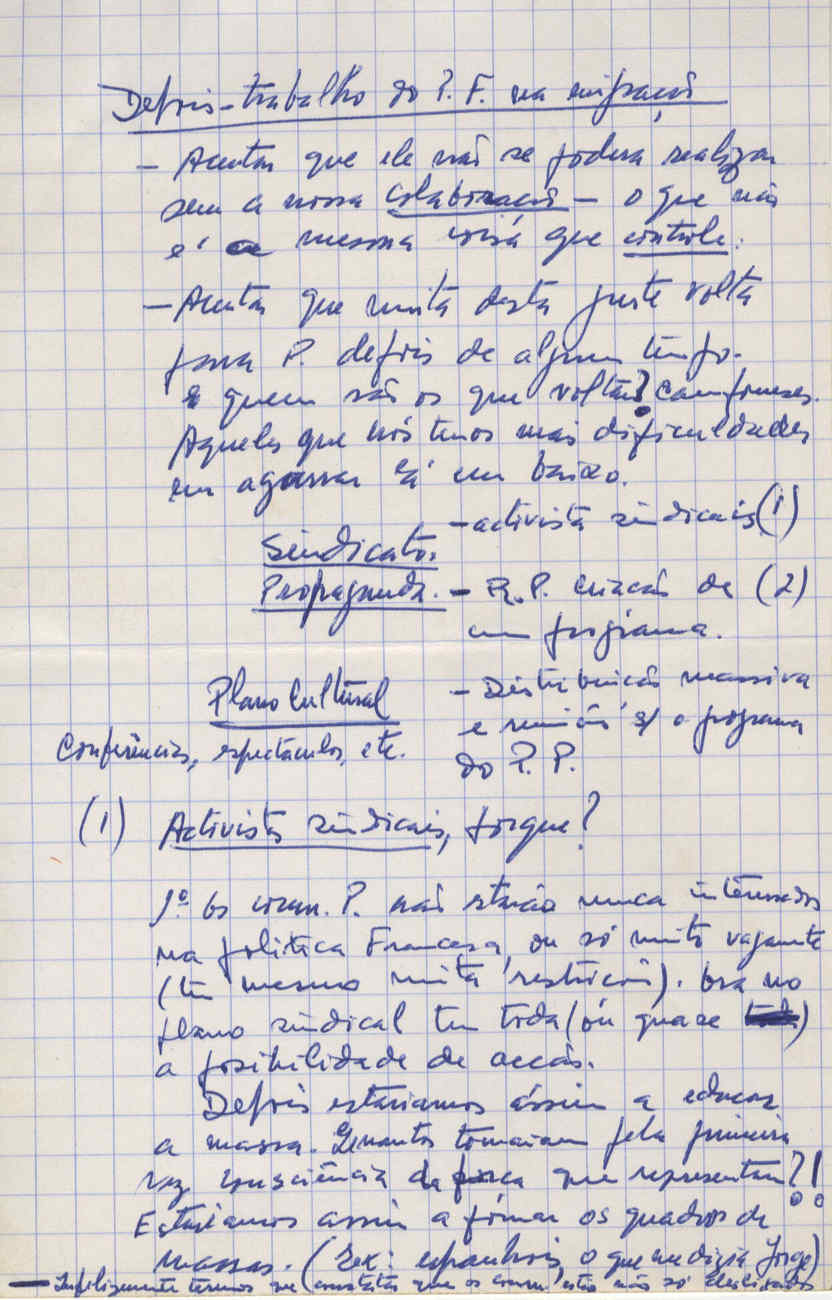 Depois - trabalho do P. F. na migração
- Acentar que ele não se poderá realizar
sem a nossa colaboração - o que não
é a mesma coisa que controle.
- Acentar que muita desta gente volta
para P. depois de algum tempo.
E quem são os que voltam? camponeses.
Aqueles que nós temos mais dificuldades
em agarrar lá em baixo.
- activistas sindicais (1)
Sindicatos.
Propaganda. - R.P. criação de (2)
um programa.
Plano Cultural
- Distribuição massiva
e reunião s/ o programa
do P. P.
Conferências, espectáculos, etc.
(1) Activistas sindicais, porque?
1º Os cam. P. não estarão nunca interessados
na politica Francesa, ou só muito vagamente
(tem mesmo muita restrição). Ora no
plano sindical tem toda (ou quase)
a possibilidade de acção.
Depois estariamos assim a educar
a massa. Quantos tomariam pela primeira
vez consciência da força que representam?!
Estariamos assim a formar os quadros de
massas. (Ex: espanhois, o que me dizia Jorge)
- Infelizmente temos que constatar que os estão não só desligados